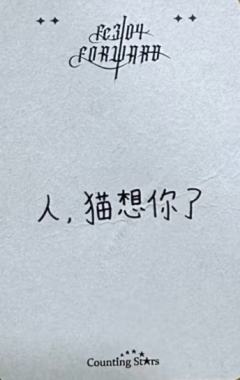 FC3/04
FORWARD
人，猫想你了
Counting St★rs